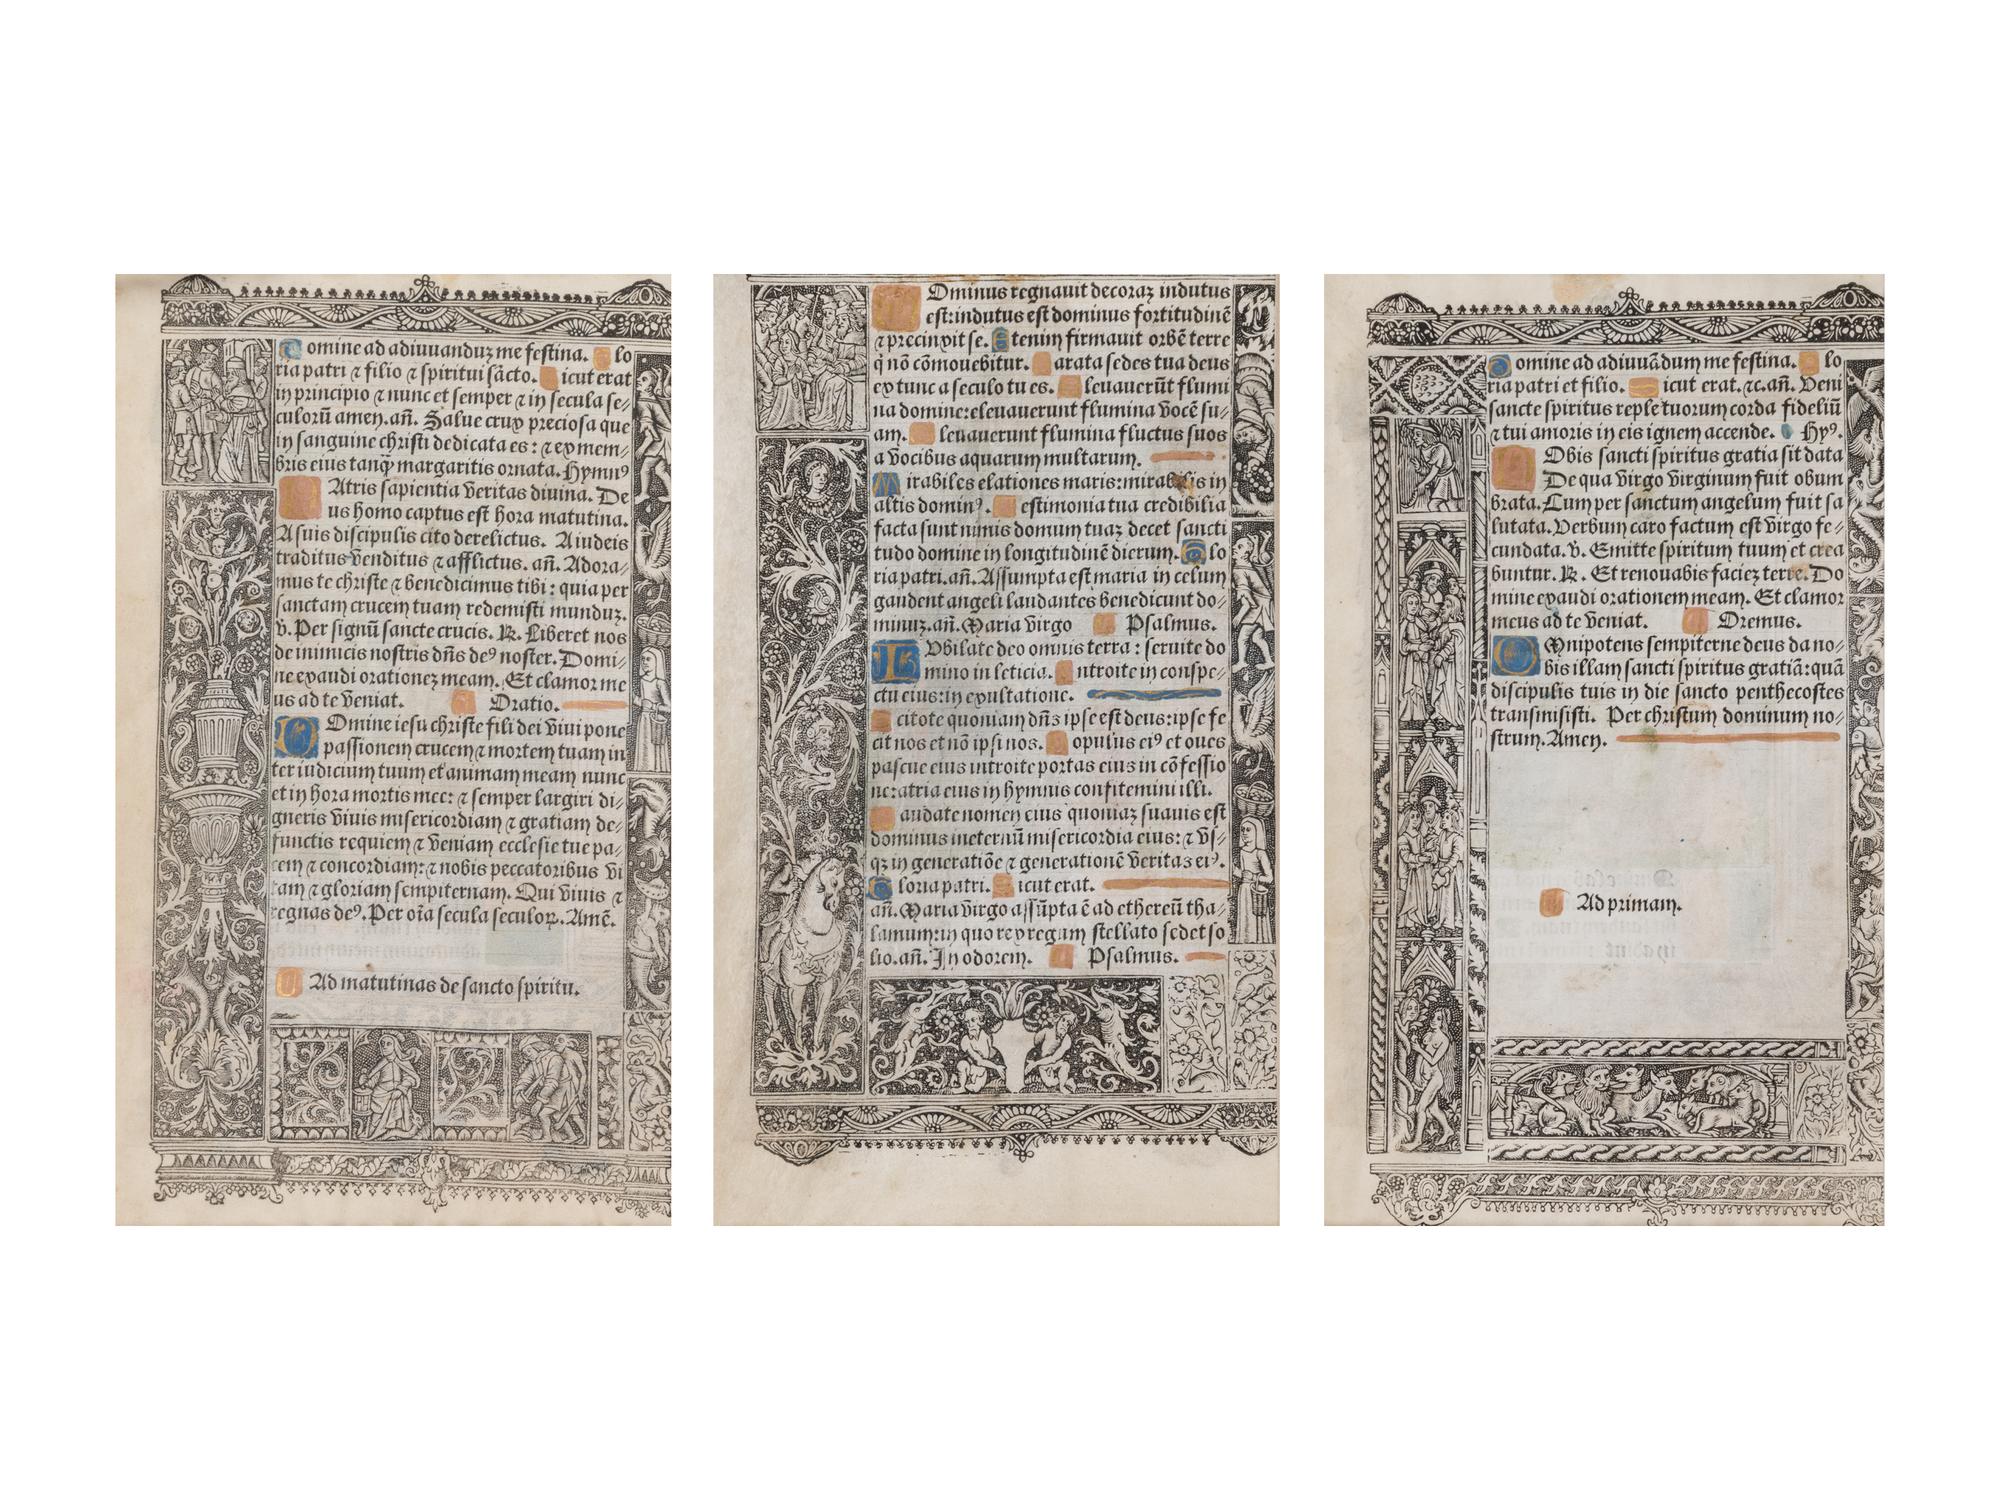 Domine ad adiuuanduz me festina. Glo
ria patri ⁊ filio ⁊ spiritui sācto. Sicut erat
in principio ⁊ nunc et semper ⁊ in secula se⸗
culorū amen. añ. Salue crux preciosa que
in sanguine christi dedicata es: ⁊ ex mem⸗
bris eius tanq̄ margaritis ornata. Hymnꝰ
Patris sapientia veritas diuina. De
us homo captus est hora matutina.
A suis discipulis cito derelictus. A iudeis
traditus venditus ⁊ afflictus. añ. Adora⸗
mus te christe ⁊ benedicimus tibi: quia per
sanctam crucem tuam redemisti munduz.
v. Per signū sancte crucis. ℟. Liberet nos
de inimicis nostris dñs deꝰ noster. Domi⸗
ne exaudi orationez meam. Et clamor me
us ad te veniat. Oratio.
Domine iesu christe fili dei viui pone
passionem crucem ⁊ mortem tuam in
ter iudicium tuum et animam meam nunc
et in hora mortis mee: ⁊ semper largiri di⸗
gneris viuis misericordiam ⁊ gratiam de⸗
functis requiem ⁊ veniam ecclesie tue pa⸗
cem ⁊ concordiam: ⁊ nobis peccatoribus vi
tam ⁊ gloriam sempiternam. Qui viuis ⁊
regnas deꝰ. Per oīa secula seculoꝝ. Amē.
Ad matutinas de sancto spiritu.
Dominus regnauit decoraz indutus
est: indutus est dominus fortitudinē
⁊ precinxit se. Etenim firmauit orbē terre
q̇ nō cōmouebitur. Parata sedes tua deus
ex tunc a seculo tu es. Eleuauerūt flumi
na domine: eleuauerunt flumina vocē su⸗
am. Eleuauerunt flumina fluctus suos
a vocibus aquarum multarum.
Mirabiles elationes maris: mirabilis in
altis dominꝰ. Testimonia tua credibilia
facta sunt nimis domum tuaz decet sancti
tudo domine in longitudinē dierum. Glo
ria patri. añ. Assumpta est maria in celum
gaudent angeli laudantes benedicunt do⸗
minuz. añ. Maria virgo Psalmus.
Iubilate deo omnis terra: seruite do
mino in leticia. Introite in conspe⸗
ctu eius: in exultatione.
Scitote quoniam dñs ipse est deus: ipse fe
cit nos et nō ipsi nos. Populus eiꝰ et oues
pascue eius introite portas eius in cōfessio
ne: atria eius in hymnis confitemini illi.
Laudate nomen eius quoniaz suauis est
dominus in eternū misericordia eius: ⁊ vs⸗
qz in generatiōe ⁊ generationē veritas eiꝰ.
Gloria patri. Sicut erat.
añ. Maria virgo assūpta ē ad ethereū tha⸗
lamum: in quo rex regum stellato sedet so
lio. añ. In odorem. Psalmus.
Domine ad adiuuādum me festina. Glo
ria patri et filio. Sicut erat. ⁊c. añ. Veni
sancte spiritus reple tuorum corda fideliū
⁊ tui amoris in eis ignem accende. Hyꝰ.
Nobis sancti spiritus gratia sit data
De qua virgo virginum fuit obum
brata. Cum per sanctum angelum fuit sa
lutata. Verbum caro factum est virgo fe⸗
cundata. v. Emitte spiritum tuum et crea
buntur. ℟. Et renouabis faciez terre. Do
mine exaudi orationem meam. Et clamor
meus ad te veniat. Oremus.
Omnipotens sempiterne deus da no⸗
bis illam sancti spiritus gratiā: quā
discipulis tuis in die sancto penthecostes
transmisisti. Per christum dominum no⸗
strum. Amen.
Ad primam.